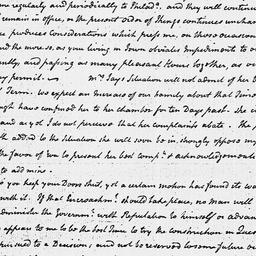 more regularly, and periodically to Philad.ª and they will continue
remain in office, or the present order of things continues unchan
se produces considerations which press me, on these occasion
and the more so, as your living in Town obviates Impediments to o
ently, and passing as many pleasant Hours together, as ou
ey permit.
Mrs Jays Situation will not admit of her
Term. We expect an Increase of our family about that Time
ugh have confined her to her chamber for ten Days past. She is
and as yet I do not perceive that her complaints abate. The
th added to the Situation she will soon be in, strongly oppose my
the favor of you to present her best Comp.ts & acknowledgments
to add mine.
do you keep your Doors shut, yet a certain motion has found its wa
with. If that Encroachm.t should take place, no Man will
Administer the Governm.t with Reputation to himself or advan
appears to me to be the best Time to try the Construction in Ques
pursued to a Decision, and not be reserved to some future